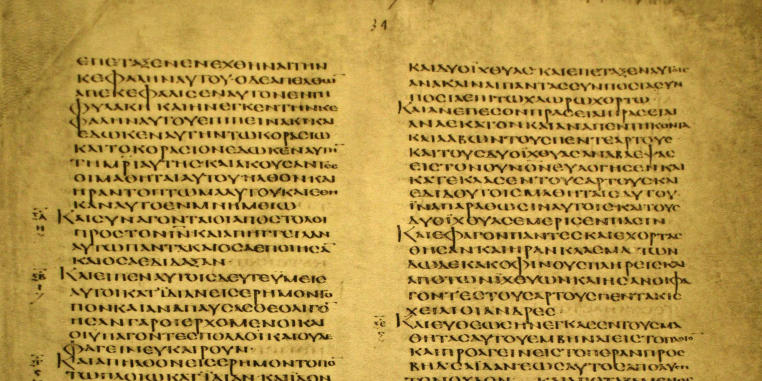 34
ΕΠΕΤΑΞΕΝΕΝΕΧΘΗΝΑΙΤΗΝ
ΚΕΦΑΛΗΝΑΥΤΟΥ·ΟΔΕΑΠΕΛΘΩ̅
ΑΠΕΚΕΦΑΛΙϹΕΝΑΥΤΟΝΕΝΤΗ
ΦΥΛΑΚΗΚΑΙΗΝΕΓΚΕΝΤΗΝΚΕ
ΦΑΛΗΝΑΥΤΟΥΕΠΙΠΙΝΑΚΙΚΑΙ
ΕΔΩΚΕΝΑΥΤΗΝΤΩΚΟΡΑϹΙΩ
ΚΑΙΤΟΚΟΡΑϹΙΟΝΕΔΩΚΕΝΑΥΤΗ̅
ΤΗΜ̅Ρ̅Ι̅ΑΥΤΗϹΚΑΙΑΚΟΥϹΑΝΤΕϹ
ΟΙΜΑΘΗΤΑΙΑΥΤΟΥΗΛΘΟΝΚΑΙ
ΗΡΑΝΤΟΠΤΩΜΑΑΥΤΟΥΚΑΙΕΘΗ
ΚΑΝΑΥΤΟΕΝΜΝΗΜΕΙΩ
ΚΑΙϹΥΝΑΓΟΝΤΑΙΟΙΑΠΟϹΤΟΛΟΙ
ΠΡΟϹΤΟΝΙ̅Ν̅ΚΑΙΑΠΗΓΓΕΙΛΑΝ
ΑΥΤΩΠΑΝΤΑΚΑΙΟϹΑΕΠΟΙΗϹΑ̅
ΚΑΙΟϹΑΕΔΙΔΑΞΑΝ·
ΚΑΙΕΙΠΕΝΑΥΤΟΙϹΔΕΥΤΕΥΜΕΙϹ
ΑΥΤΟΙΚΑΤΪΔΙΑΝΕΙϹΕΡΗΜΟΝΤΟ
ΠΟΝΚΑΙΑΝΑΠΑΥϹΑϹΘΕΟΛΙΓΟ̅
ΗϹΑΝΓΑΡΟΙΕΡΧΟΜΕΝΟΙΚΑΙ
ΟΙΥΠΑΓΟΝΤΕϹΠΟΛΛΟΙΚΑΙΟΥΔΕ
ΦΑΓΕΙΝΕΥΚΑΙΡΟΥΝ·
ΚΑΙΑΠΗΛΘΟΝΕΙϹΕΡΗΜΟΝΤΟΠΟ̅
ΤΩΠΛΟΙΩΚΑΤΪΔΙΑΝΚΑΙΪΔΟΝ
ΚΑΙΔΥΟΪΧΘΥΑϹΚΑΙΕΠΕΤΑΞΕΝΑΥΤΟΙϹ
ΑΝΑΚΛΙΝΑΙΠΑΝΤΑϹϹΥΜΠΟϹΙΑϹΥΜ
ΠΟϹΙΑΕΠΙΤΩΧΛΩΡΩΧΟΡΤΩ
ΚΑΙΑΝΕΠΕϹΟΝΠΡΑϹΙΑΙΠΡΑϹΙΑΙ
ΑΝΑΕΚΑΤΟΝΚΑΙΑΝΑΠΕΝΤΗΚΟΝΤΑ
ΚΑΙΛΑΒΩΝΤΟΥϹΠΕΝΤΕΑΡΤΟΥϹ
ΚΑΙΤΟΥϹΔΥΟΪΧΘΥΑϹΑΝΑΒΛΕΨΑϹ
ΕΙϹΤΟΝΟΥΝΟΝΕΥΛΟΓΗϹΕΝΚΑΙ
ΚΑΤΕΚΛΑϹΕΝΤΟΥϹΑΡΤΟΥϹΚΑΙ
ΕΔΙΔΟΥΤΟΙϹΜΑΘΗΤΑΙϹΑΥΤΟΥ·
ΪΝΑΠΑΡΑΘΩϹΙΝΑΥΤΟΙϹΚΑΙΤΟΥϹ
ΔΥΟΪΧΘΥΑϹΕΜΕΡΙϹΕΝΠΑϹΙΝ
ΚΑΙΕΦΑΓΟΝΠΑΝΤΕϹΚΑΙΕΧΟΡΤΑϹ
ΘΗϹΑΝΚΑΙΗΡΑΝΚΛΑϹΜΑΤΩΝ
ΔΩΔΕΚΑΚΟΦΙΝΟΥϹΠΛΗΡΕΙϹΚΑΙ
ΑΠΟΤΩΝΪΧΘΥΩΝΚΑΙΗϹΑΝΟΙΦΑ
ΓΟΝΤΕϹΤΟΥϹΑΡΤΟΥϹΠΕΝΤΑΚΙϹ
ΧΕΙΛΙΟΙΑΝΔΡΕϹ
ΚΑΙΕΥΘΕΩϹΗΝΕΓΚΑϹΕΝΤΟΥϹΜΑ
ΘΗΤΑϹΑΥΤΟΥΕΜΒΗΝΑΙΕΙϹΤΟΠΛΟΙΟ̅
ΚΑΙΠΡΟΑΓΕΙΝΕΙϹΤΟΠΕΡΑΝΠΡΟϹ
ΒΗΘϹΑΪΔΑΝΕΩϹΑΥΤΟϹΑΠΟΛΥϹΗ